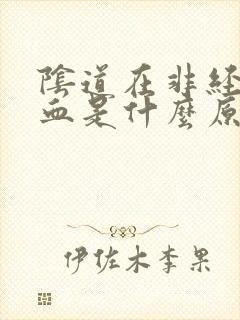 陰道在非經
血是什麼原
伊佐木李果